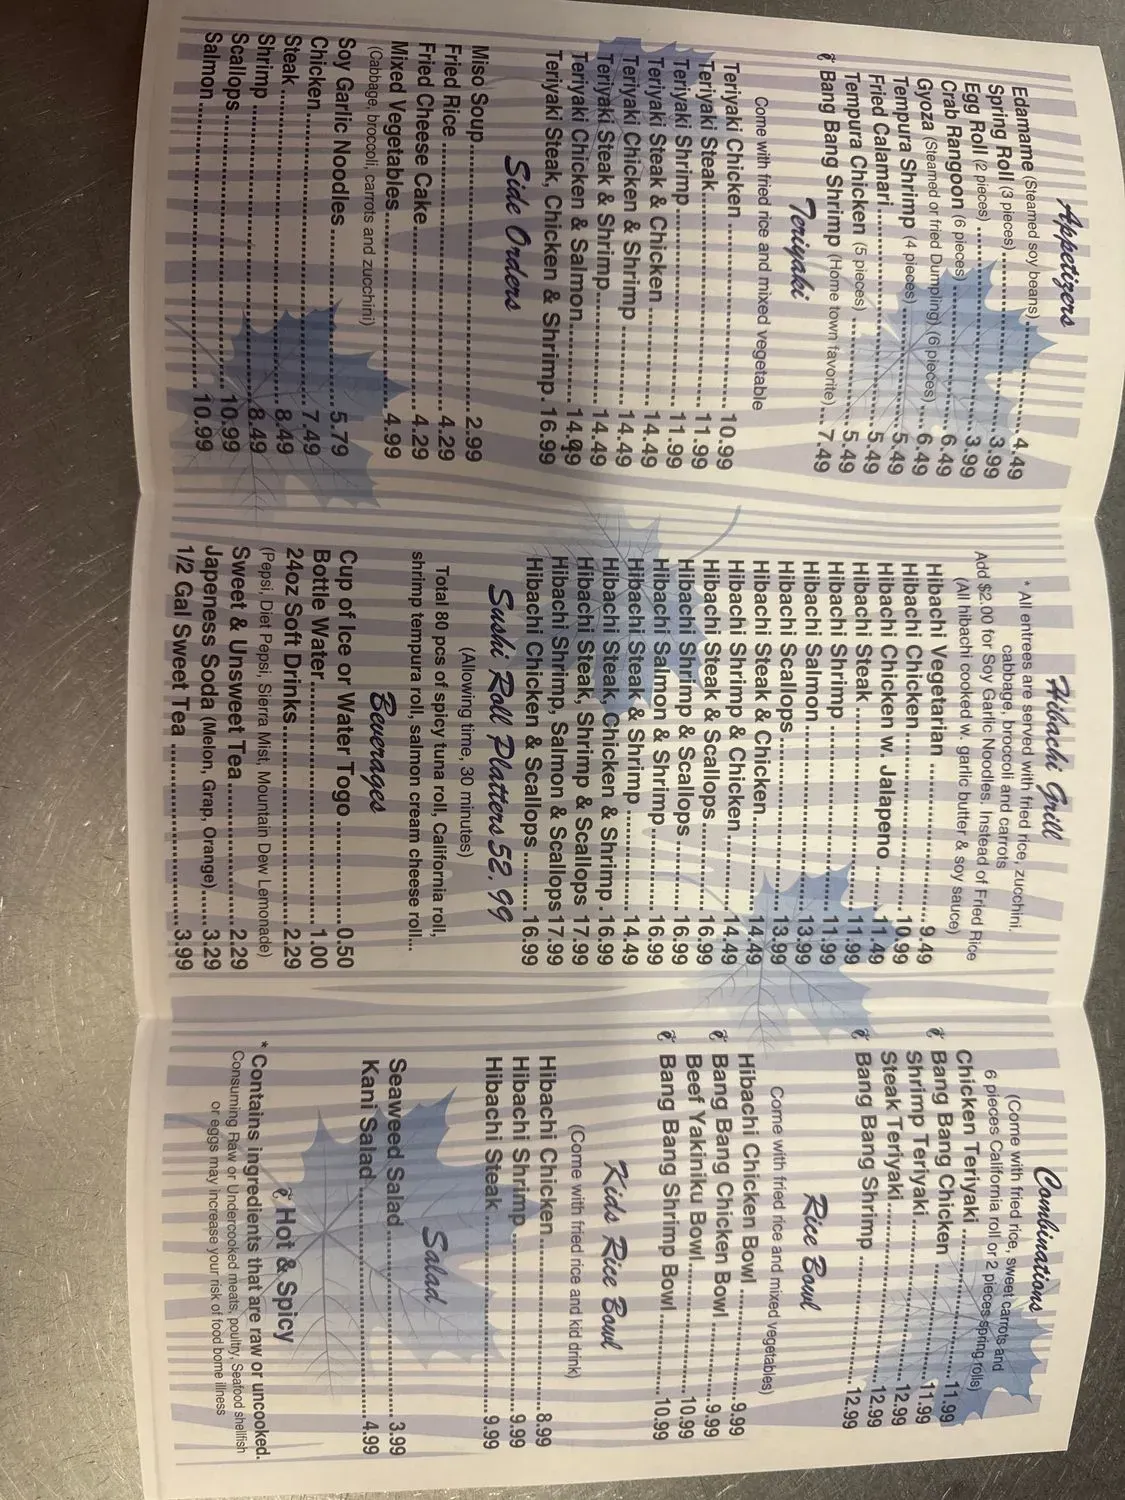 Appetizers
Edamame (Steamed soy beans) 4.49
Spring Roll (3 pieces) 3.99
Egg Roll (2 pieces) 3.99
Crab Rangoon (6 pieces) 6.49
Gyoza (Steamed or fried Dumpling) (6 pieces) 6.49
Tempura Shrimp (4 pieces) 5.49
Fried Calamari 5.49
Tempura Chicken (5 pieces) 5.49
Bang Bang Shrimp (Home town favorite) 7.49
Teriyaki
Come with fried rice and mixed vegetable
Teriyaki Chicken 10.99
Teriyaki Steak 11.99
Teriyaki Shrimp 11.99
Teriyaki Steak & Chicken 14.49
Teriyaki Chicken & Shrimp 14.49
Teriyaki Steak & Shrimp 14.49
Teriyaki Chicken & Salmon 14.99
Teriyaki Steak, Chicken & Shrimp 16.99
Side Orders
Miso Soup 2.99
Fried Rice 4.29
Fried Cheese Cake 4.29
Mixed Vegetables 4.99
(Qabbage, broccoli, carrots and zucchini)
Soy Garlic Noodles 5.79
Chicken 7.49
Steak 8.49
Shrimp 8.49
Scallops 10.99
Salmon 10.99
Hibachi Grill
* All entrees are served with fried rice, zuchini.
cabbage, broccoli and carrots
Add $2.00 for Soy Garlic Noodles. Instead of Fried Rice
(All hibachi cooked w. garlic butter & soy sauce)
Hibachi Vegetarian 9.49
Hibachi Chicken 10.99
Hibachi Chicken w. Jalapeno 11.49
Hibachi Steak 11.99
Hibachi Shrimp 11.99
Hibachi Salmon 13.99
Hibachi Scallops 13.99
Hibachi Steak & Chicken 14.49
Hibachi Shrimp & Chicken 14.49
Hibachi Steak & Scallops 16.99
Hibachi Shrimp & Scallops 16.99
Hibachi Salmon & Shrimp 16.99
Hibachi Steak & Shrimp 14.49
Hibachi Steak, Chicken & Shrimp 16.99
Hibachi Steak, Shrimp & Scallops 17.99
Hibachi Shrimp, Salmon & Scallops 17.99
Hibachi Chicken & Scallops 16.99
Sushi Roll Platters 52.99
(Allowing time, 30 minutes)
Total 80 pcs of spicy tuna roll, California roll,
shrimp tempura roll, salmon cream cheese roll...
Beverages
Cup of Ice or Water Togo 0.50
Bottle Water 1.00
24oz Soft Drinks 2.29
(Pepsi, Diet Pepsi, Sierra Mist, Mountain Dew Lemonade)
Sweet & Unsweet Tea 2.29
Japeness Soda (Melon, Grap, Orange) 3.29
1/2 Gal Sweet Tea 3.99
Combinations
(Come with fried rice, sweet carrots and
6 pieces California roll or 2 pieces spring rolls)
Chicken Teriyaki 11.99
Bang Bang Chicken 11.99
Shrimp Teriyaki 12.99
Steak Teriyaki 12.99
Bang Bang Shrimp 12.99
Rice Bowl
Come with fried rice and mixed vegetables)
Hibachi Chicken Bowl 9.99
Bang Bang Chicken Bowl 9.99
Beef Yakiniku Bowl 10.99
Bang Bang Shrimp Bowl 10.99
Kids Rice Bowl
(Come with fried rice and kid drink)
Hibachi Chicken 8.99
Hibachi Shrimp 9.99
Hibachi Steak 9.99
Salad
Seaweed Salad 3.99
Kani Salad 4.99
Hot & Spicy
* Contains ingredients that are raw or uncooked.
Consuming Raw or Undercooked meats, poultry, Seafood shellfish
or eggs may increase your risk of food borne illness